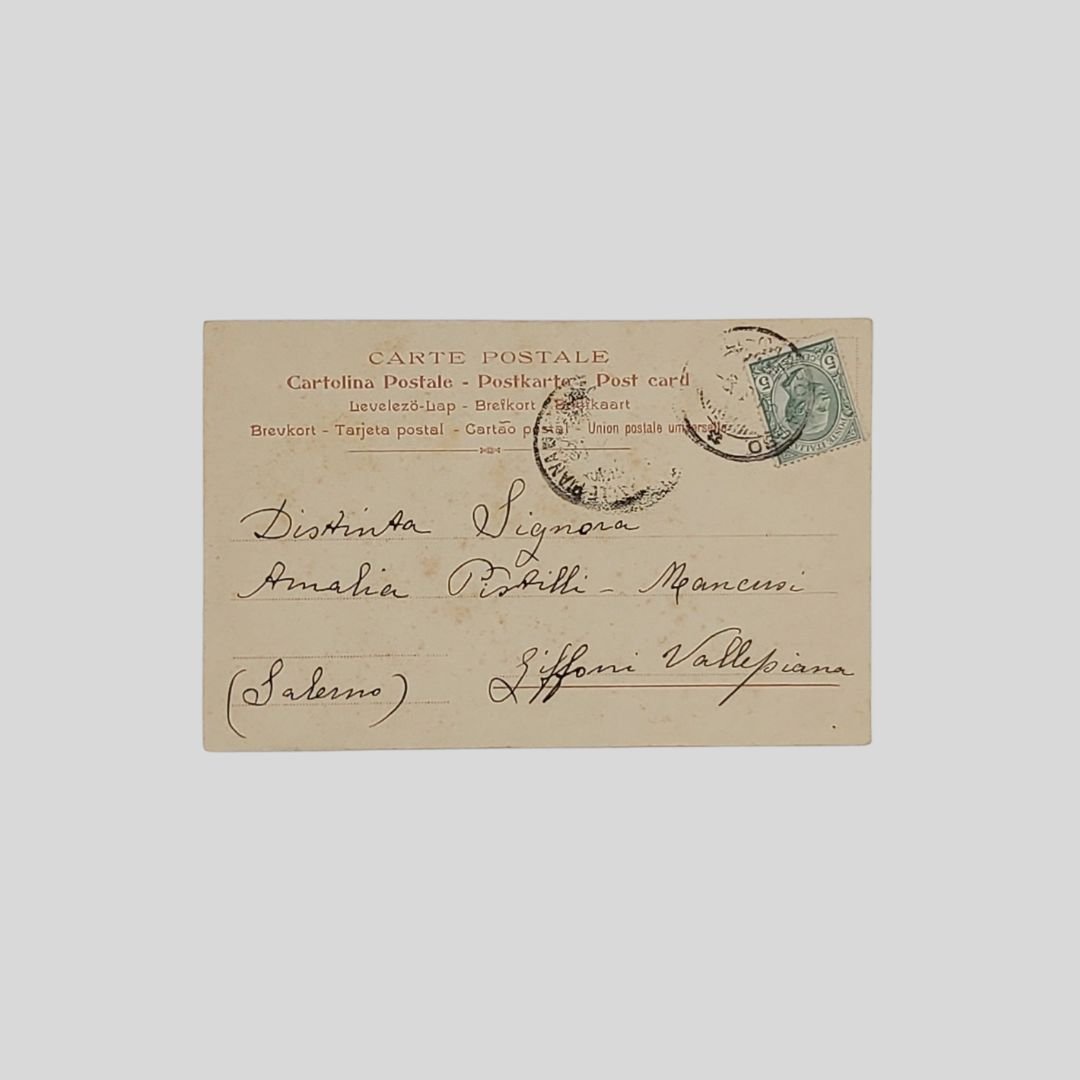 CARTE POSTALE
Cartolina Postale - Postkarte - Post card
Levelező-Lap - Brefkort - Briefkaart
Brevkort - Tarjeta postal - Cartão postal - Union postale universelle
5 5
POSTE ITALIANE
Distinta Signora
Amalia Pistilli - Mancusi
Giffoni Vallepiana
(Salerno)